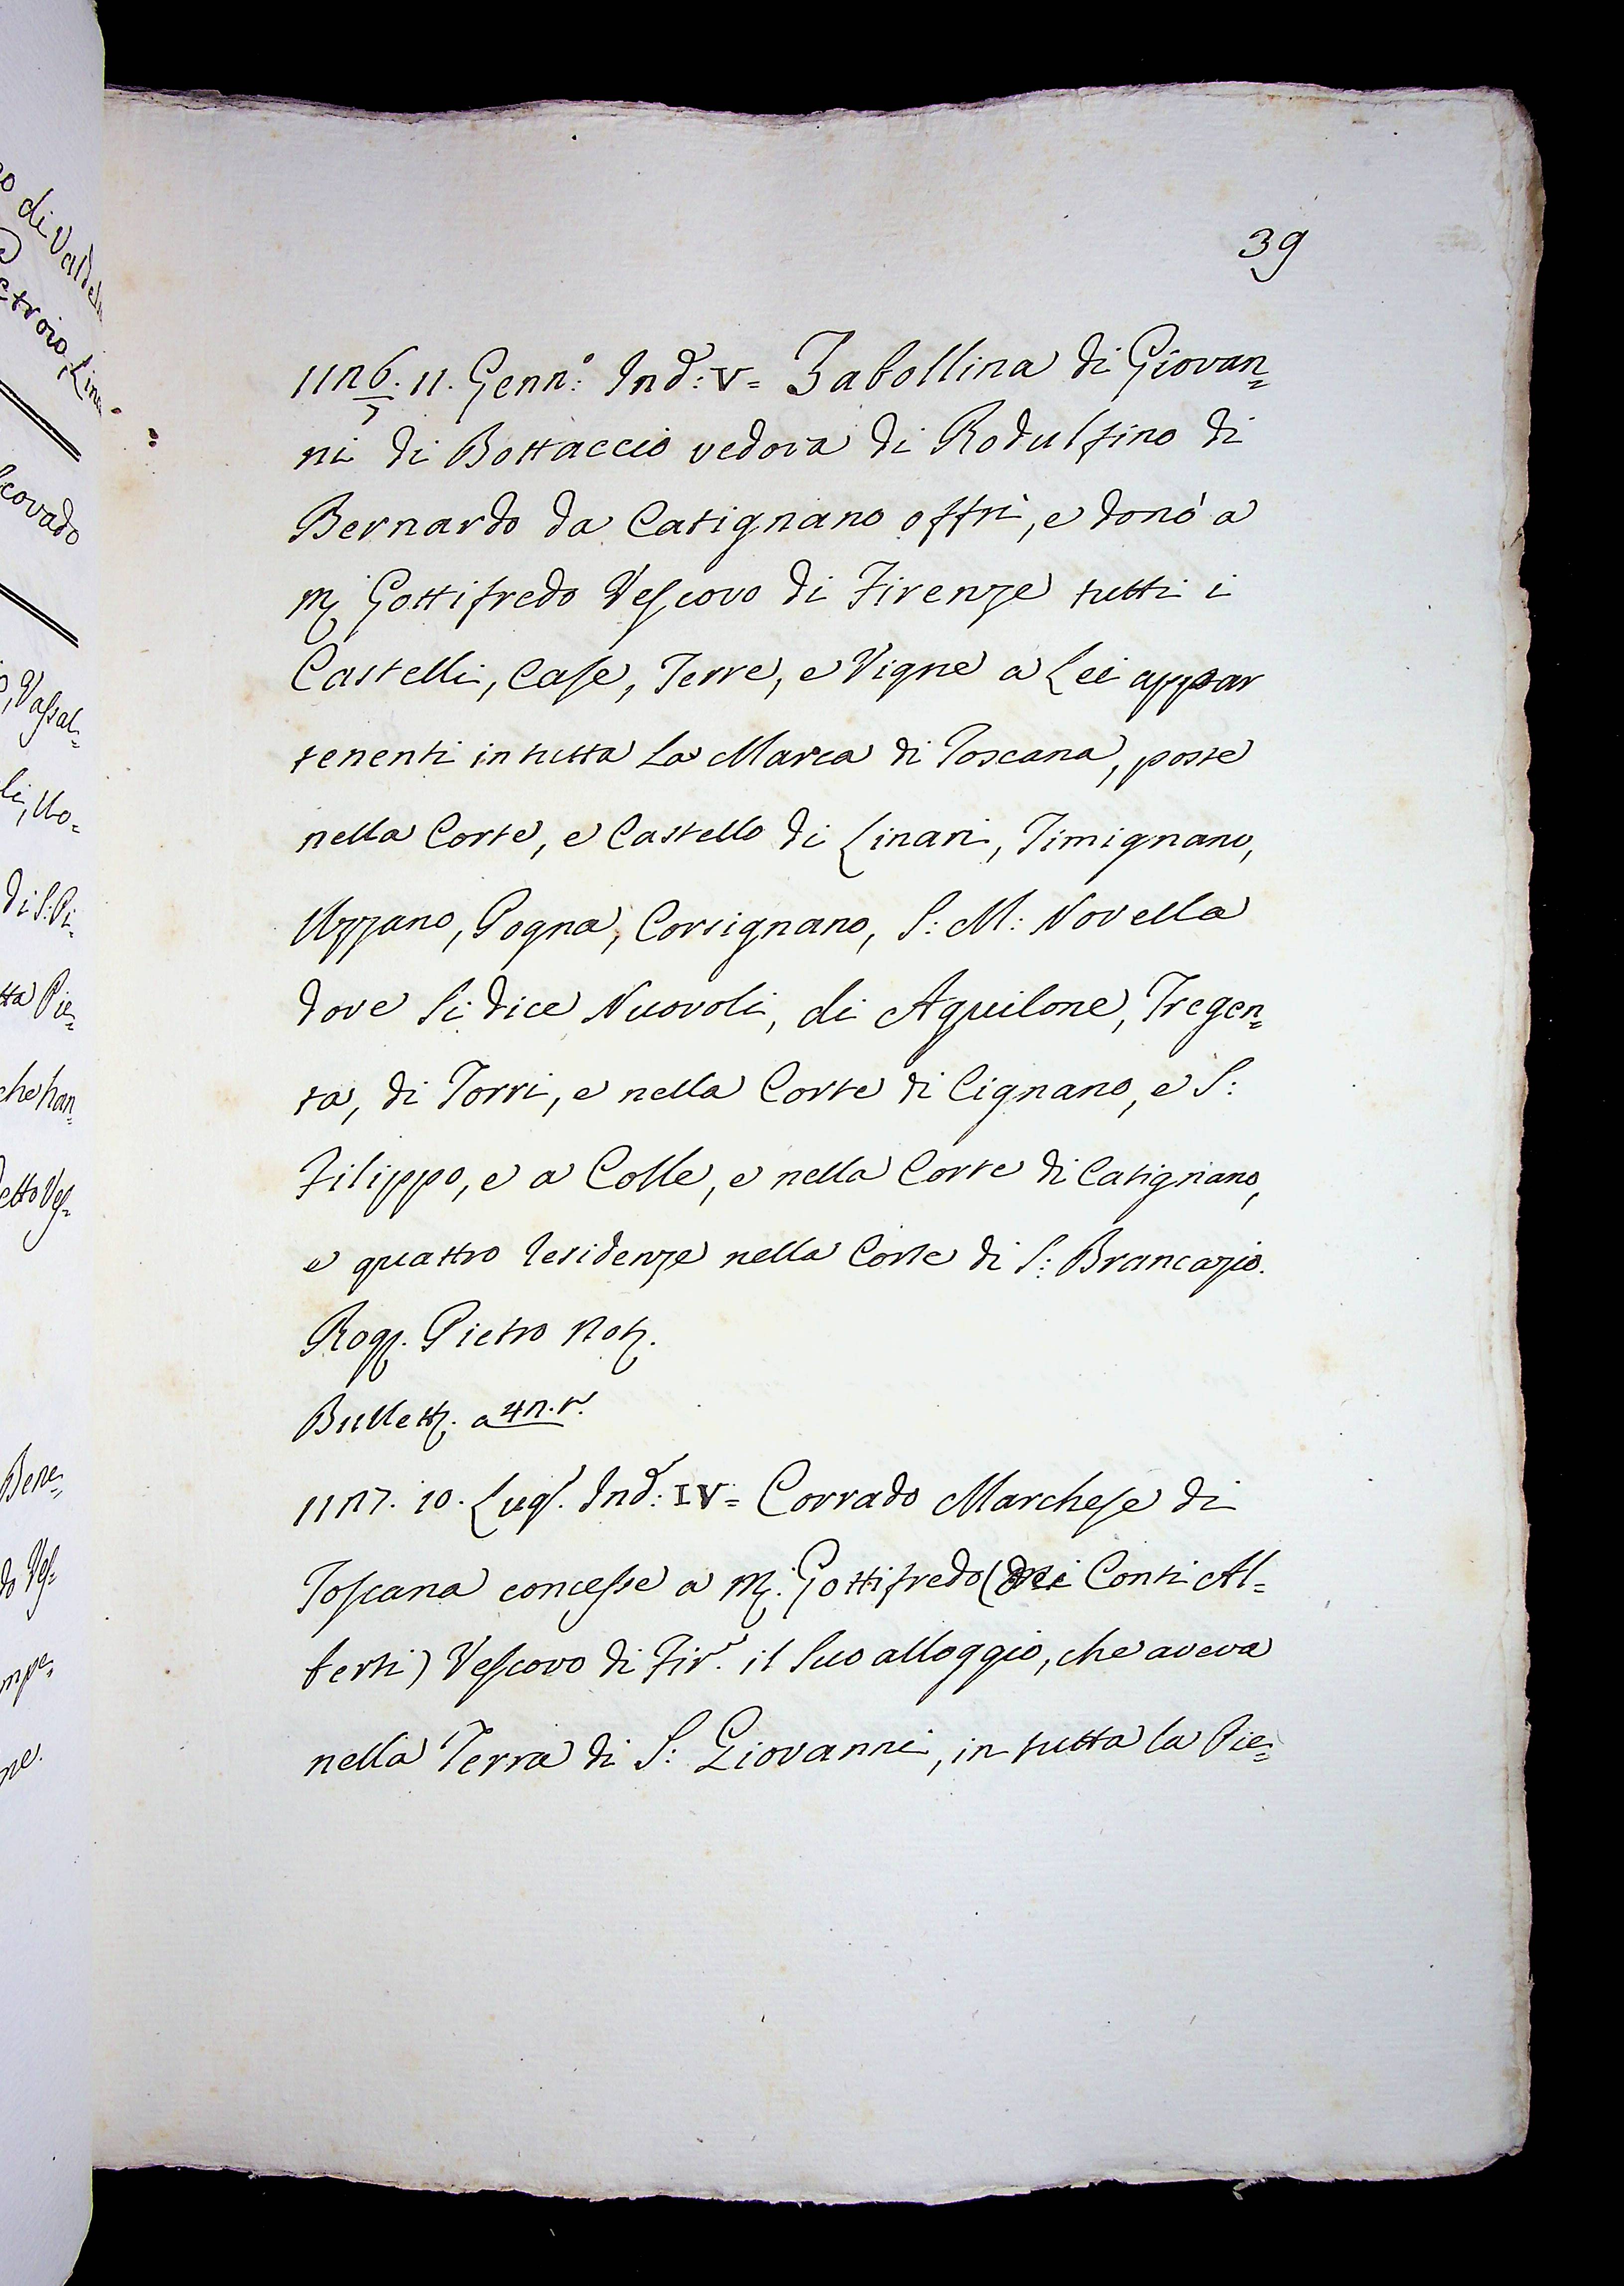 39
1126/7. 11. Genn.º Ind: V= Zabollina di Giovan=
ni di Bottaccio vedova di Rodulfino di
Bernardo da Catignano offrì, e donò a
M. Gottifredo Vescovo di Firenze tutti i
Castelli, Case, Terre, e Vigne a Lei appar
tenenti in tutta La Marca di Toscana, poste
nella Corte, e Castello di Linari, Timignano,
Uzzano, Pogna, Corsignano, S: M: Novella
dove si dice Nuovoli, di Aquilone, Tregen=
ta, di Torri, e nella Corte di Cignano, e S:
Filippo, e a Colle, e nella Corte di Catignano,
e quattro residenze nella Corte di S: Brancazio.
Rog. Pietro Not.
Bullett. a 42. r.
1127. 10. Lug. Ind: IV= Corrado Marchese di
Toscana concesse a M. Gottifredo (dei Conti Al=
berti) Vescovo di Fir. il suo alloggio, che aveva
nella Terra di S: Giovanni, in tutta la Pie=